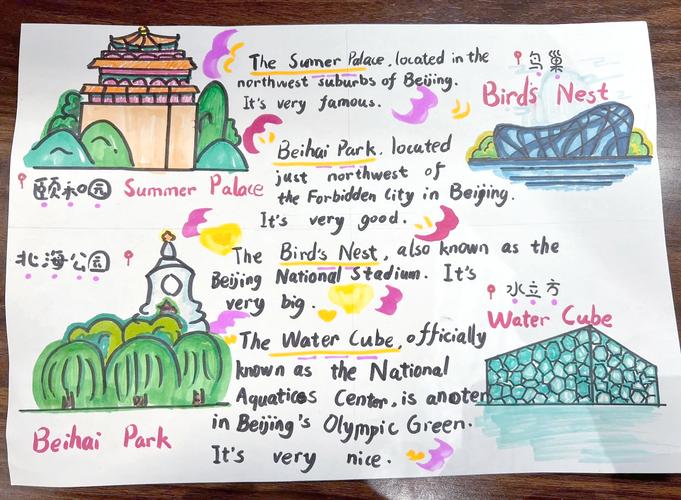 The Sumner Palace, located in the
northwest suburbs of Beijing.
It's very famous.
颐和园 Summer Palace
鸟巢
Bird's Nest
Beihai Park, located
just northwest of
the Forbidden City in Beijing.
It's very good.
北海公园
Beihai Park
The Bird's Nest, also known as the
Beijing National Stadium. It's
very big.
水立方
Water Cube
The Water Cube, officially
known as the National
Aquatices Center, is anoter
in Beijing's Olympic Green.
It's very nice.